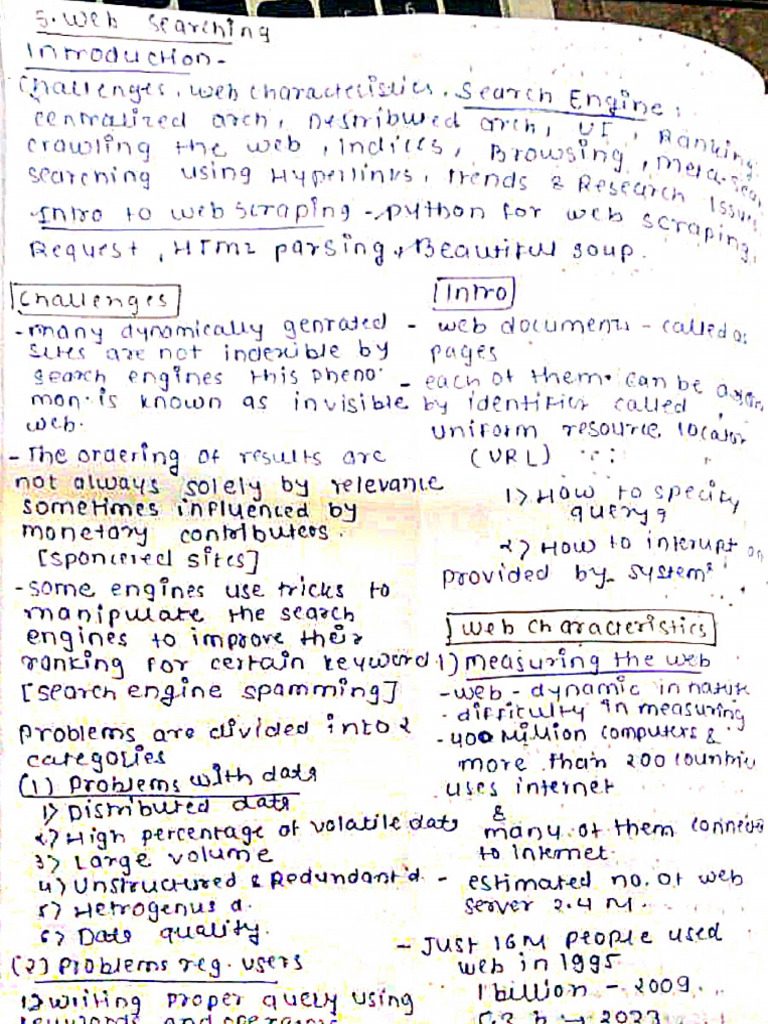 5. Web Searching
Introduction -
Challenges, web characteristics, Search Engine:
centralized arch, Destribuved arch, UI, Ranking,
crawling the web, indices, Browsing, meta-sear
searching using Hyperlinks, trends & Research Issues
Intro to web scraping - python for web scraping,
Request, HTML parsing, Beautiful soup.
Challenges
- many dynamically genrated
sites are not indexible by
search engines this pheno
mon. is known as invisible
web.
- The ordering of results are
not always solely by relevance
sometimes influenced by
monetary contributers.
[sponcered sites]
- some engines use tricks to
manipulate the search
engines to improve their
ranking for certain keyword
[search engine spamming]
Problems are divided into 2
categories
(1) Problems with data
1) Distributed data
2) High percentage of volatile data
3) Large volume
4) Unstructured & Redundant d.
5) Hetrogenus d.
6) Data quality.
(2) Problems reg. users
1) writing proper query using
keywords and
Intro
- web documents - called as
pages
- each of them can be
by identifier called
uniform resource locator
(URL)
1) How to specify
query?
2) How to interupt
provided by system?
Web Characteristics
1) measuring the web
- web - dynamic in nature
- difficulty in measuring
- 400 Million computers &
more than 200 countries
uses internet
&
many of them connects
to internet.
- estimated no. of web
server 2.4 M.
- Just 16M people used
web in 1995
1 billion - 2009.
5.3 b - 2023